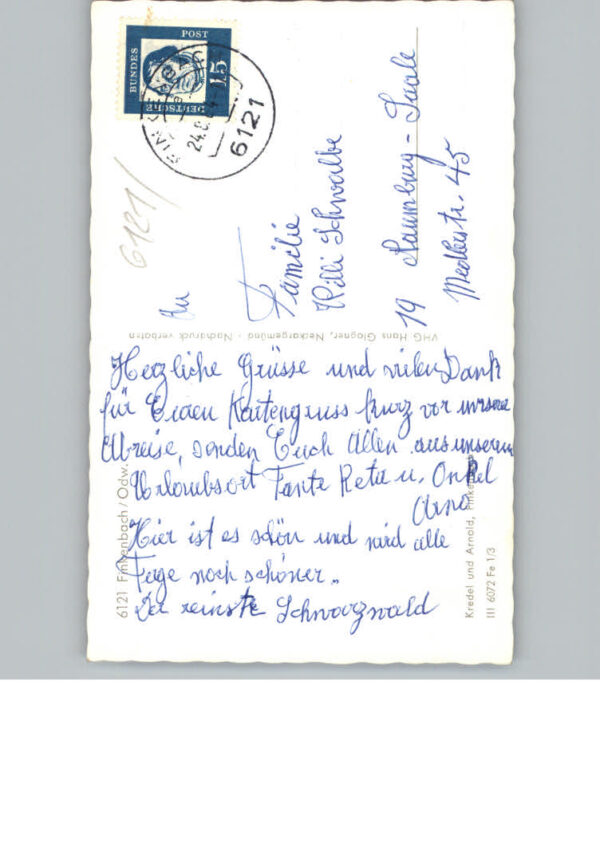 DEUTSCHE
BUNDES
POST
15
6121
6121/
An
Familie
Willi Schwalbe
19 Naumburg-Saale
Medlerstr. 45
VHG: Hans Glagner, Neckargemünd - Nachdruck verboten
Herzliche Grüsse und vielen Dank
für Euren Kartengruss kurz vor unsrer
Abreise, senden Euch Allen aus unserem
Urlaubsort Tante Reta u. Onkel
Arno
Hier ist es schön und wird alle
Tage noch schöner.
Der reinste Schwarzwald
6121 Finkenbach/Odw.
Kredel und Arnold,
III 6072 Fe 1/3